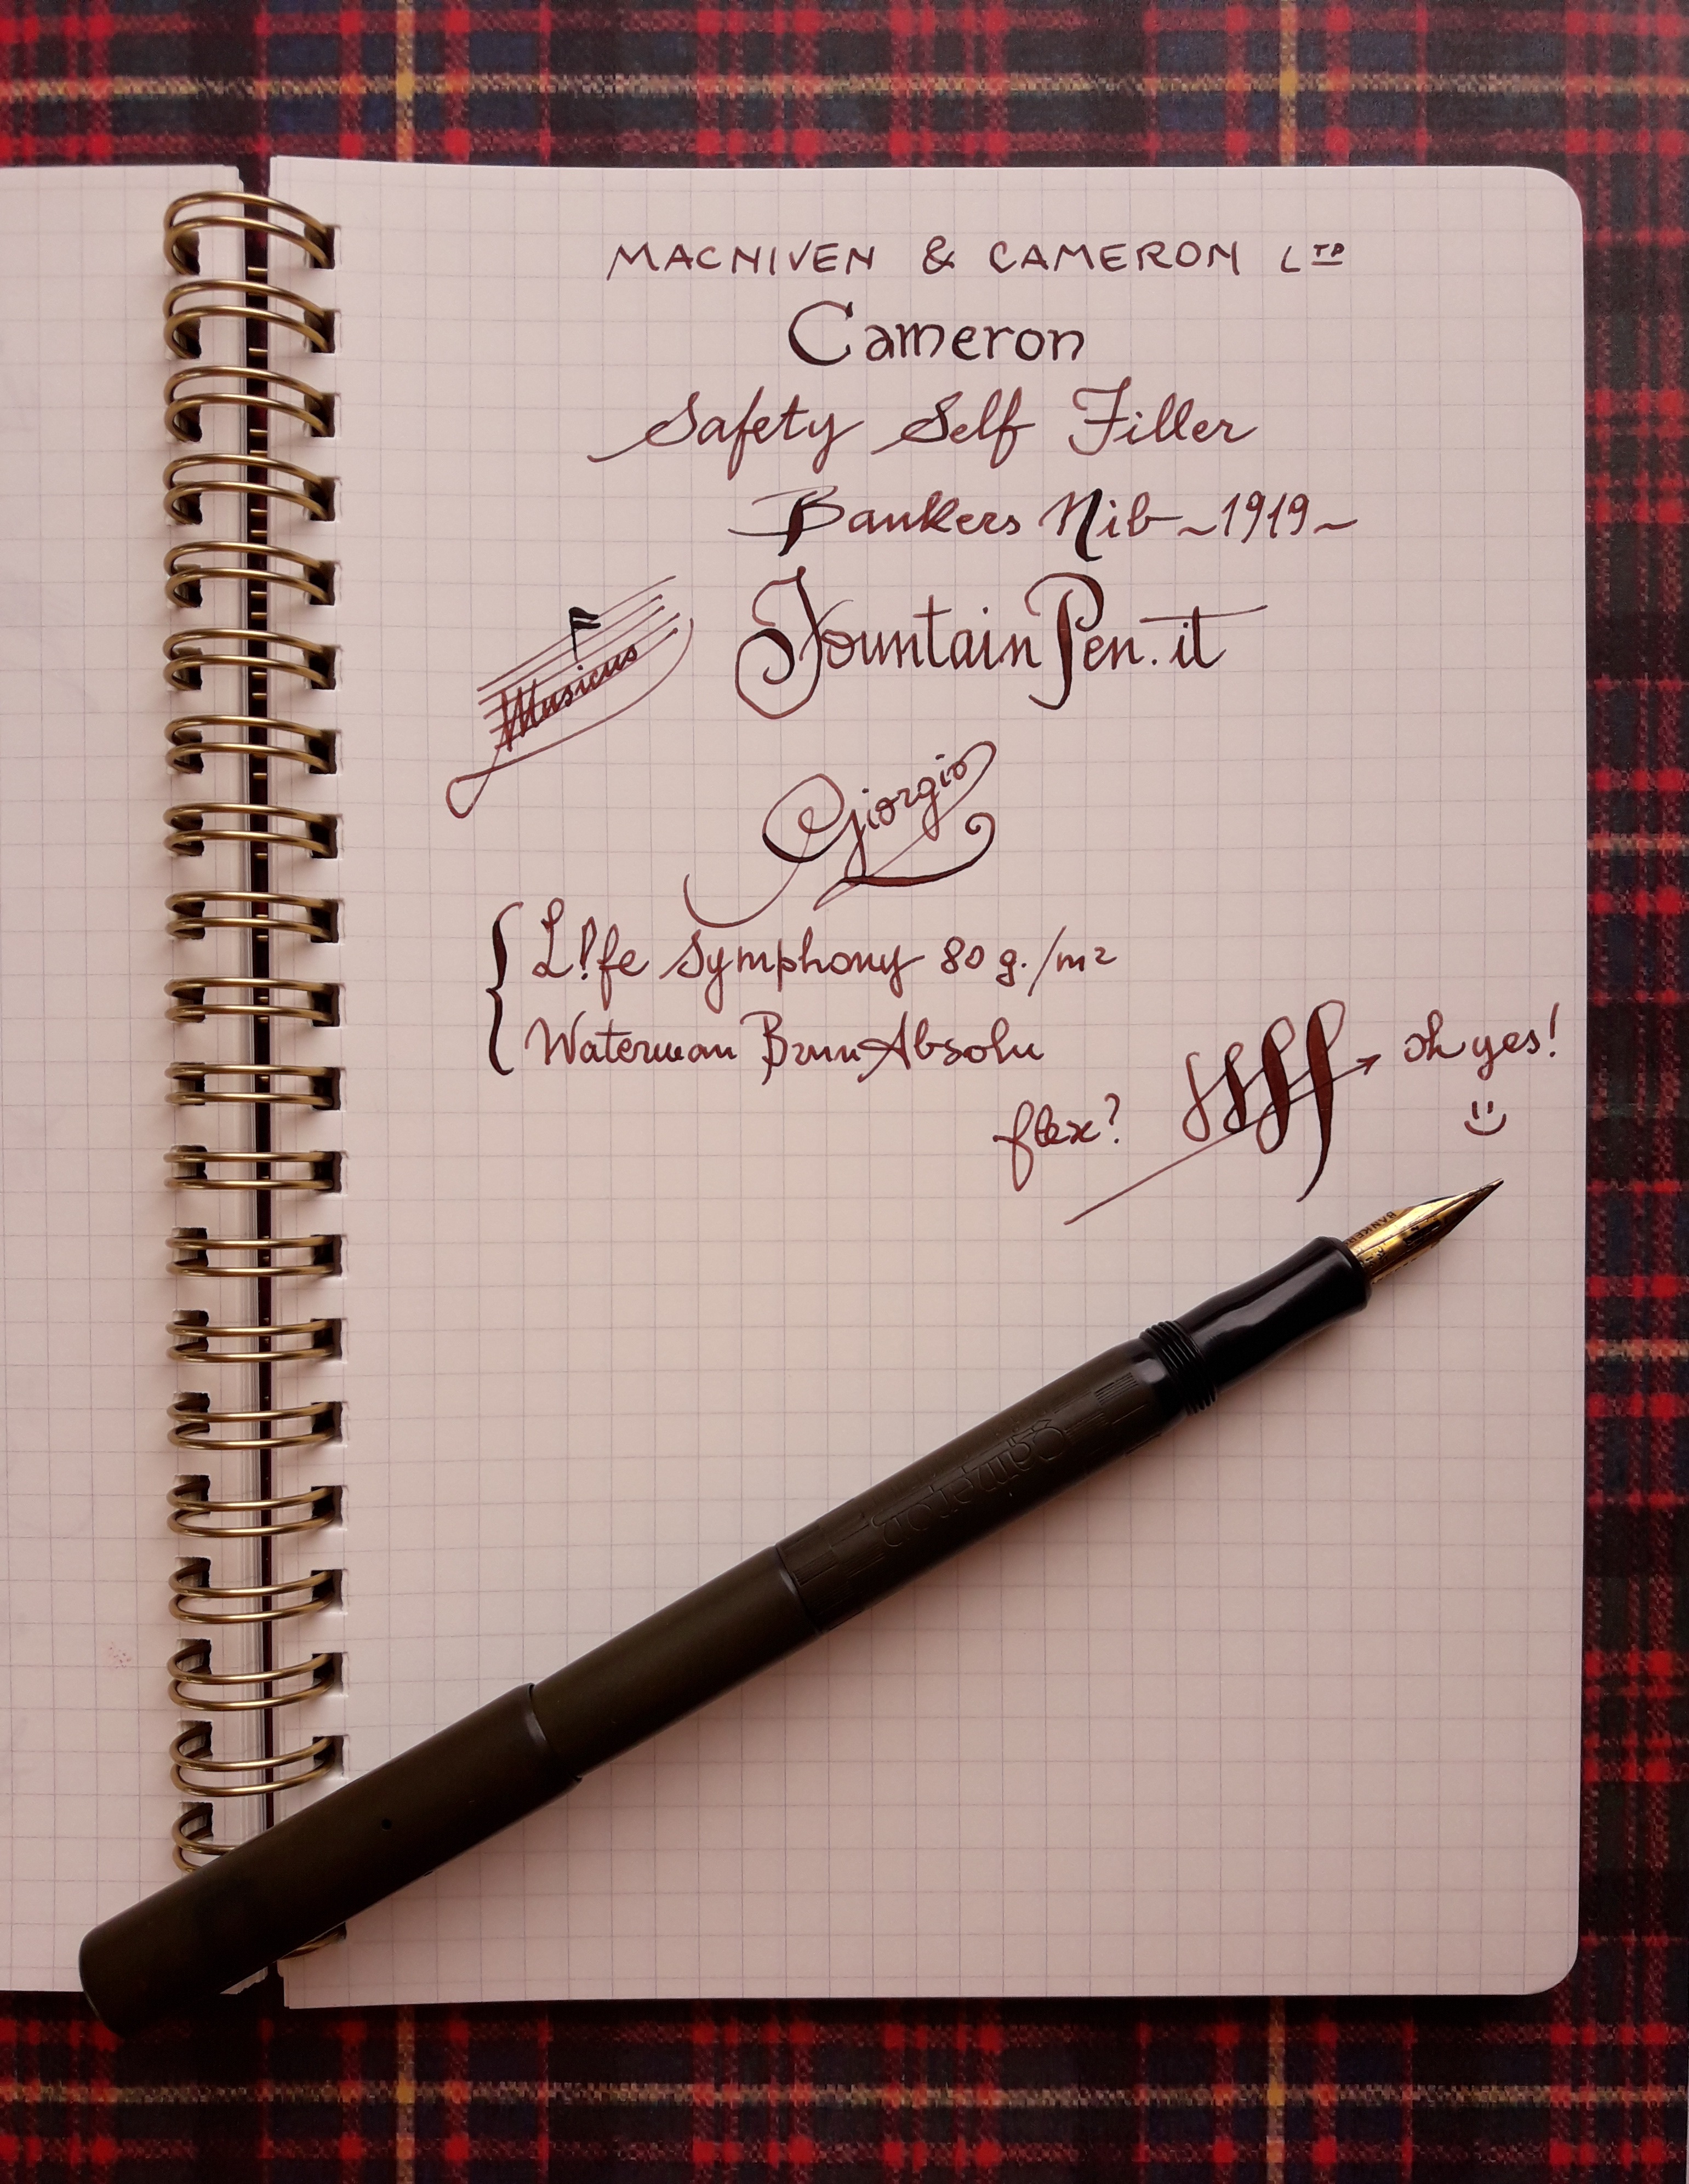 MACNIVEN & CAMERON LTD
Cameron
Safety Self Filler
Bankers Nib ~1919~
Musicus
FountainPen.it
Giorgio
L!fe Symphony 80 g./m2
Waterman Brun Absolu
flex?
oh yes!
BANKERS
Cameron